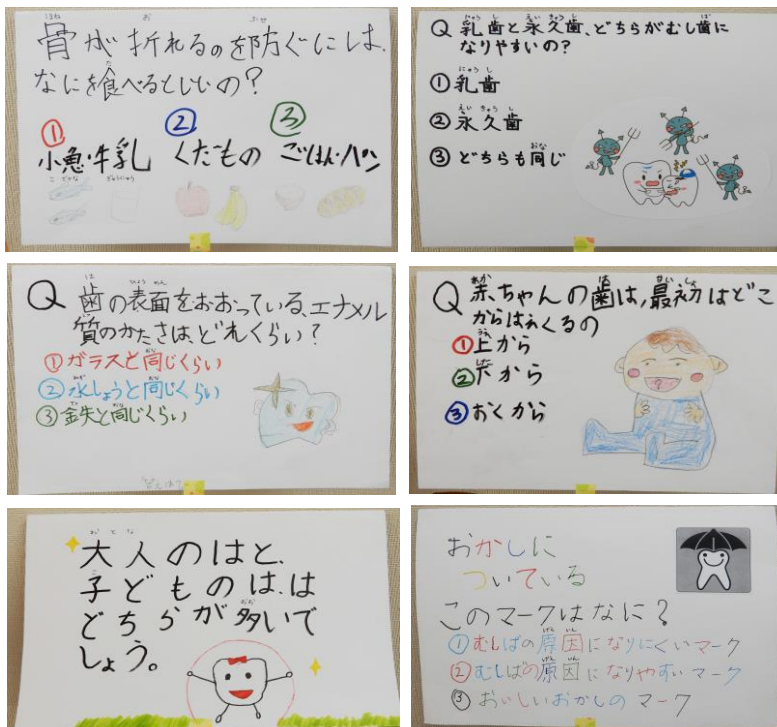 骨が折れるのを防ぐには、
なにを食べるといいの？
① ② ③
小魚・牛乳 くだもの ごはん・パン
Q 乳歯と永久歯、どちらがむし歯に
なりやすいの？
①乳歯
②永久歯
③どちらも同じ
Q 歯の表面をおおっている、エナメル
質のかたさは、どれくらい？
①ガラスと同じくらい
②水しょうと同じくらい
③金失と同じくらい
Q 赤ちゃんの歯は、最初はどこ
からはえてくるの
①上から
②下から
③おくから
大人のはと、
子どものは、は
どちらが多いで
しょう。
おかしに
ついている
このマークはなに？
①むしばの原因になりにくいマーク
②むしばの原因になりやすいマーク
③おいしいおかしのマーク